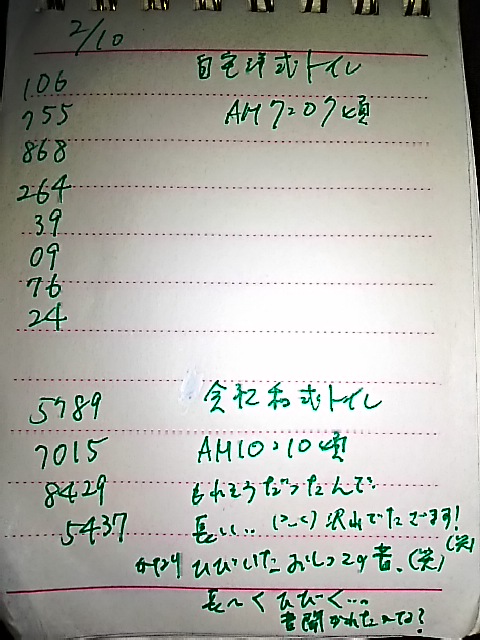 2/10
106 自宅洋式トイレ
755 AM7:07頃
868
264
39
09
76
24
5789 会社和式トイレ
7015 AM10:10頃
8429 もれそうだったんで
5437 長い.. 沢山でたさます!
ひびいたおしっこの音、(笑)(笑)
長〜くひびく…。
音聞かれたかな?